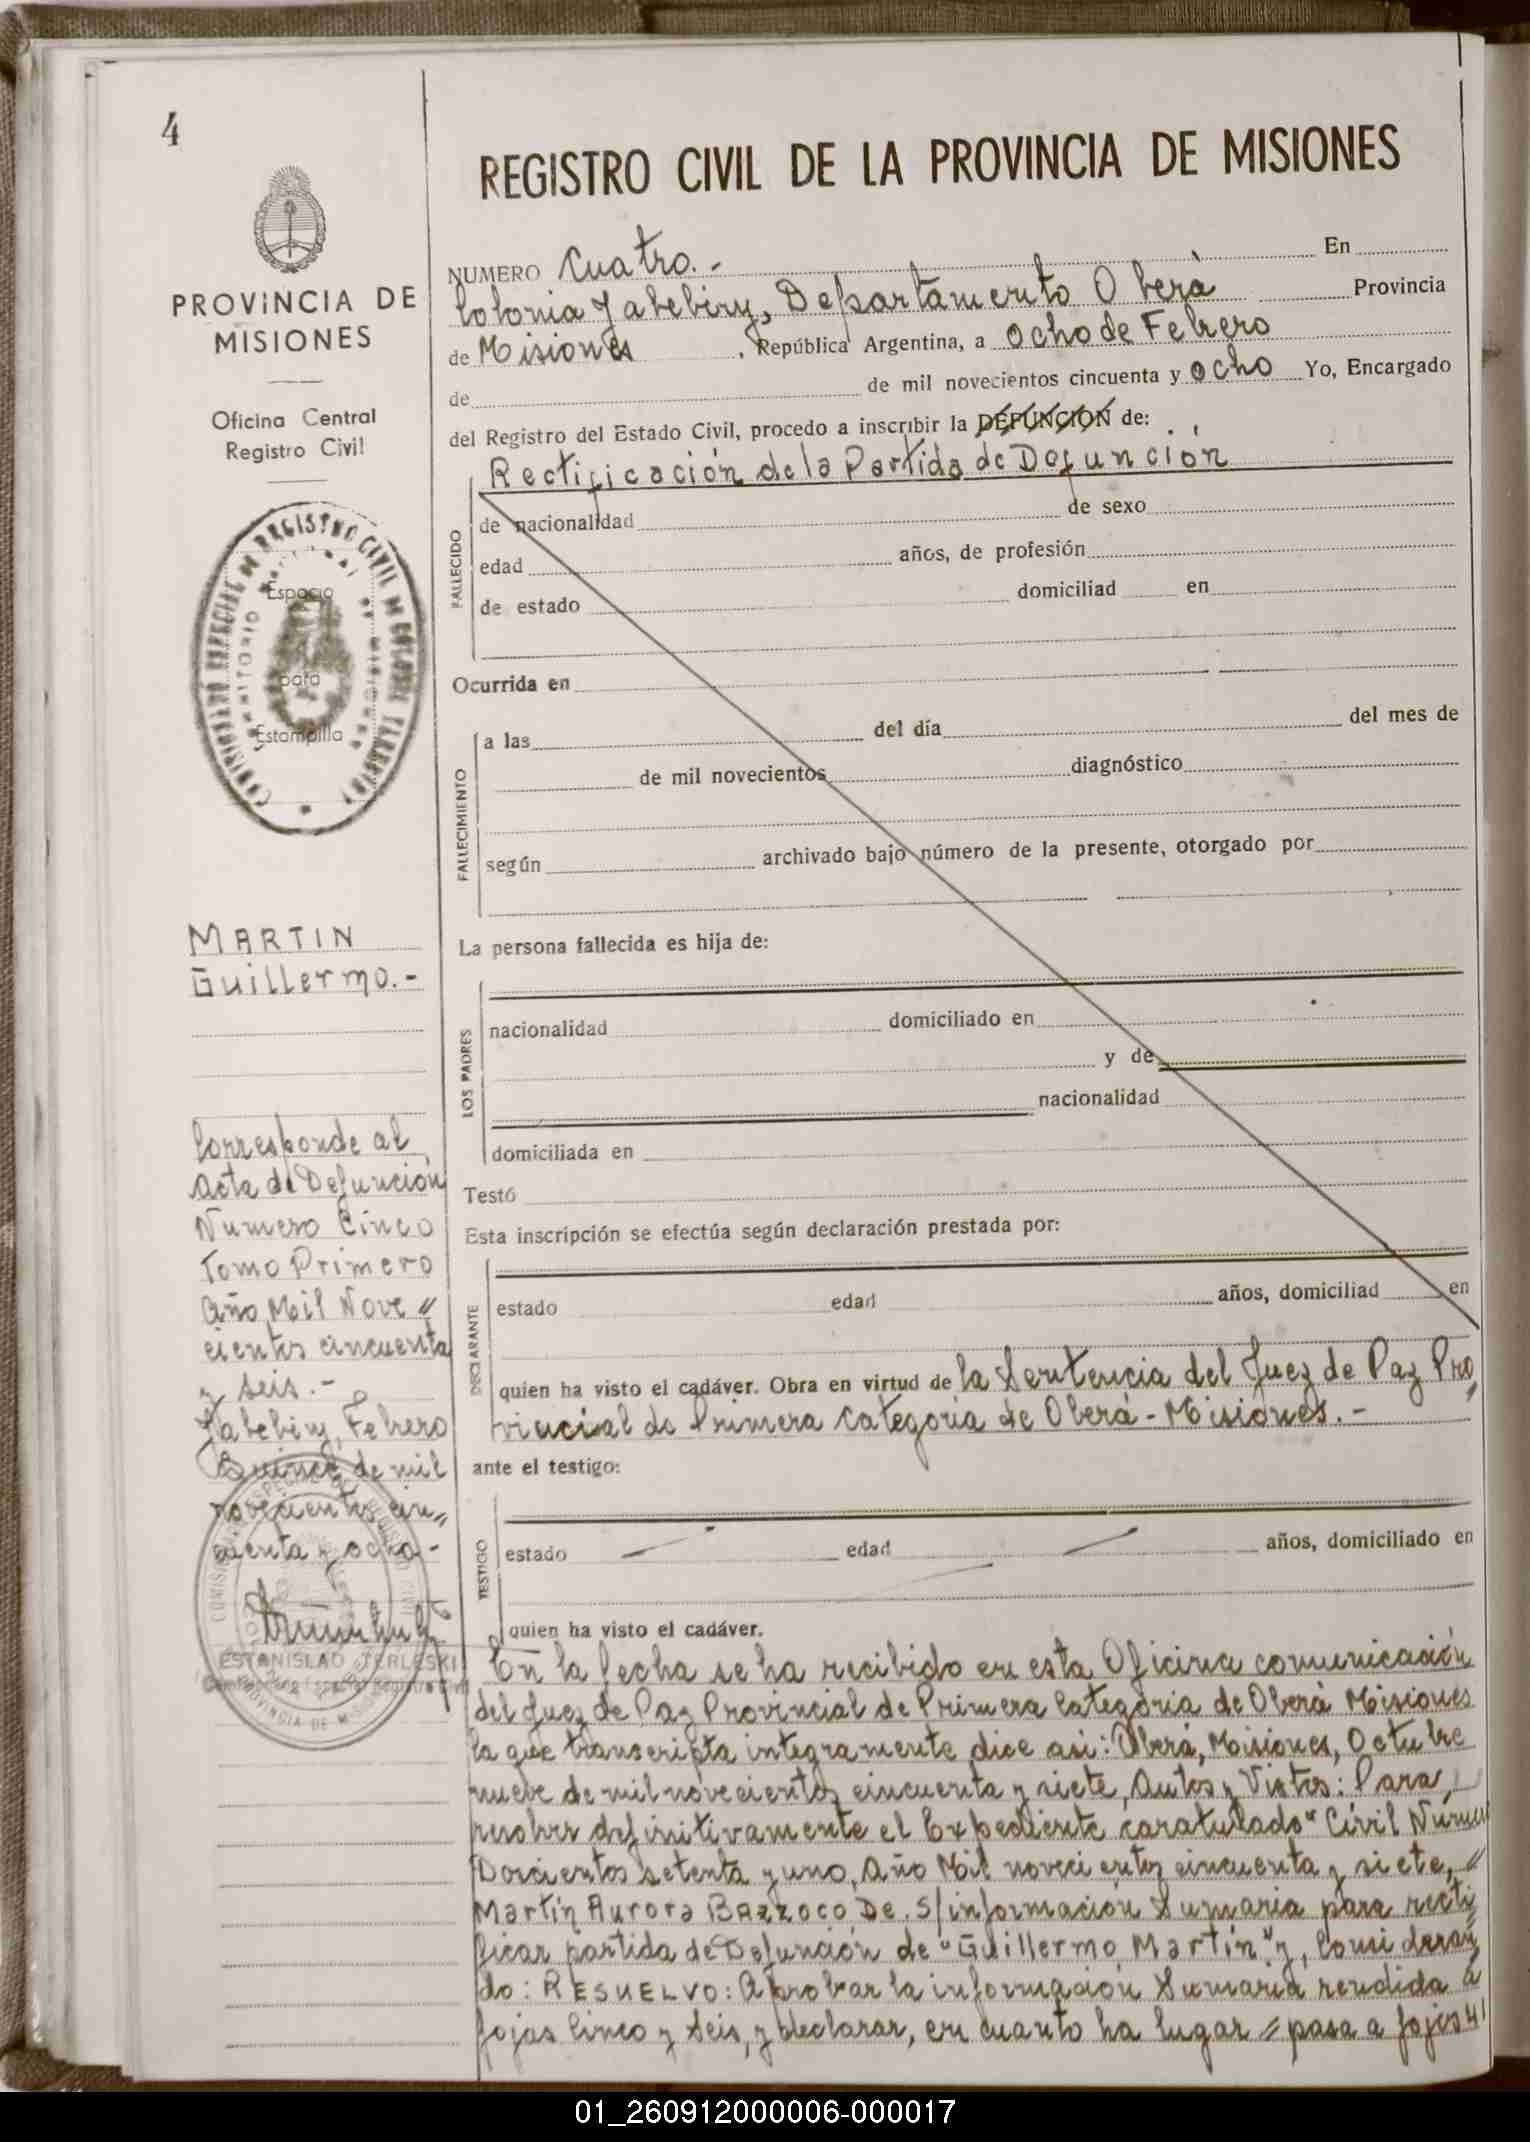 4
REGISTRO CIVIL DE LA PROVINCIA DE MISIONES
PROVINCIA DE
MISIONES
Oficina Central
Registro Civil
Espacio
para
Estampilla
MARTIN
Guillermo.-
Corresponde al
Acta de Defunción
Numero Cinco
Tomo Primero
Año Mil Nove〃
cientos cincuenta
y seis.-
Yabebiry, Febrero
Quince de mil
novecientos cin〃
cuenta y ocho-
ESTANISLAO TERLESKI
NUMERO Cuatro.- En
Colonia Yabebiry, Departamento Oberá Provincia
de Misiones, República Argentina, a Ocho de Febrero
de de mil novecientos cincuenta y ocho Yo, Encargado
del Registro del Estado Civil, procedo a inscribir la DEFUNCION de:
Rectificación de la Partida de Defunción
FALLECIDO
de nacionalidad de sexo
edad años, de profesión
de estado domiciliad en
Ocurrida en
FALLECIMIENTO
a las del día del mes de
de mil novecientos diagnóstico
según archivado bajo número de la presente, otorgado por
La persona fallecida es hija de:
LOS PADRES
nacionalidad domiciliado en
y de
nacionalidad
domiciliada en
Testó
Esta inscripción se efectúa según declaración prestada por:
DECLARANTE
estado edad años, domiciliad en
quien ha visto el cadáver. Obra en virtud de la Sentencia del Juez de Paz Pro,
vincial de Primera Categoria de Oberá-Misiones.-
ante el testigo:
TESTIGO
estado edad años, domiciliado en
quien ha visto el cadáver.
En la fecha se ha recibido en esta Oficina comunicación
del Juez de Paz Provincial de Primera Categoria de Oberá Misiones
la que transcripta integramente dice asi: Oberá, Misiones, Octubre
nueve de mil novecientos cincuenta y siete, Autos y Vistos: Para
resolver definitivamente el Expediente caratulado "Civil Número
Doscientos setenta y uno, Año Mil novecientos cincuenta y siete, 〃
Martín Aurora BAZZOCO De. S/información Sumaria para recti
ficar partida de Defunción de "Guillermo Martín" y, Consideran
do: RESUELVO: Aprobar la información Sumaria rendida a
fojas Cinco y Seis, y declarar, en cuanto ha lugar = pasa a fojas 4'
01_260912000006-000017